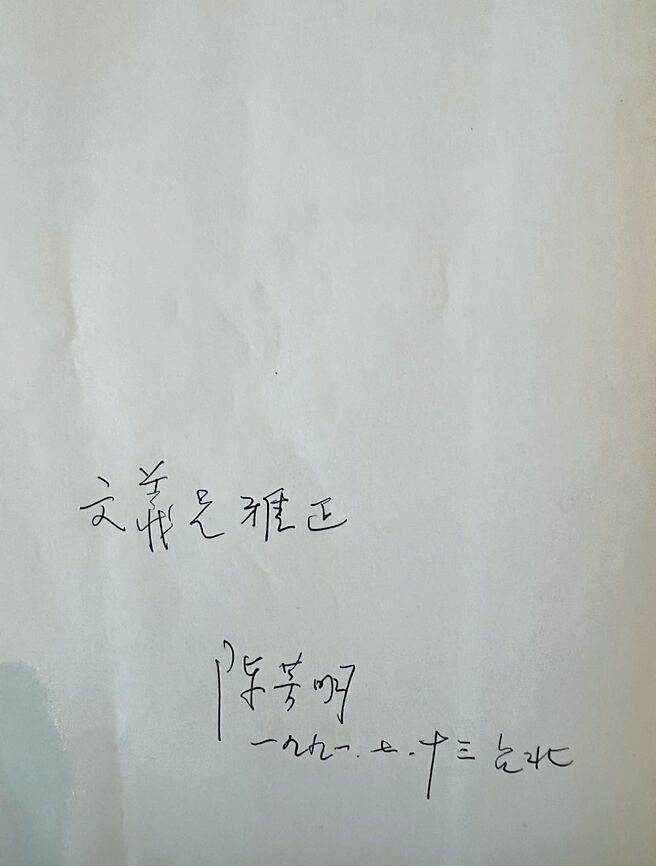 文義兄雅正
陳芳明
一九九一.七.十三 台北